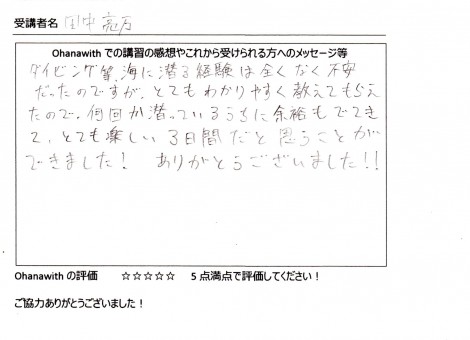 受講者名 田中亮万
Ohanawith での講習の感想やこれから受けられる方へのメッセージ等
ダイビング等、海に潜る経験は全くなく不安
だったのですが、とてもわかりやすく教えてもらえ
たので、何回か潜っているうちに余裕もでてき
て、とても楽しい3日間だと思うことが
できました! ありがとうございました!!
Ohanawith の評価 ☆☆☆☆☆ 5 点満点で評価してください!
ご協力ありがとうございました!